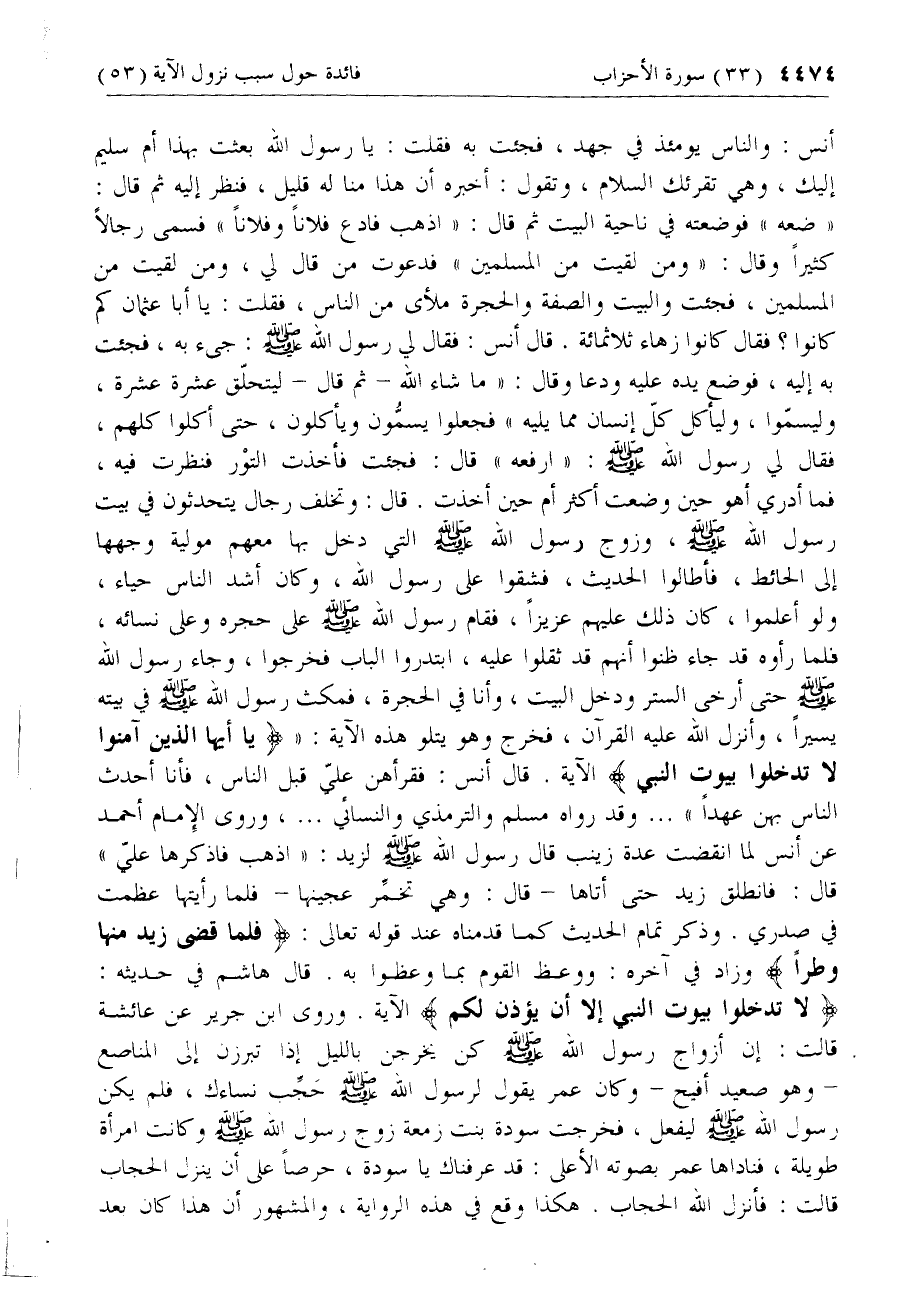 ٤٤٧٤ (٣٣) سورة الأحزاب فائدة حول سبب نزول الآية (٥٣)
أنس : والناس يومئذ في جهد ، فجئت به فقلت : يا رسول الله بعثت بهذا أم سليم
إليك ، وهي تقرئك السلام ، وتقول : أخبره أن هذا منا له قليل ، فنظر إليه ثم قال :
« ضعه » فوضعته في ناحية البيت ثم قال : « اذهب فادع فلاناً وفلاناً » فسمى رجالاً
كثيراً وقال : « ومن لقيت من المسلمين » فدعوت من قال لي ، ومن لقيت من
المسلمين ، فجئت والبيت والصفة والحجرة ملأى من الناس ، فقلت : يا أبا عثمان كم
كانوا؟ فقال كانوا زهاء ثلاثمائة . قال أنس : فقال لي رسول الله ﷺ : جيء به ، فجئت
به إليه ، فوضع يده عليه ودعا وقال : « ما شاء الله – ثم قال – ليتحلّق عشرة عشرة ،
وليسمّوا ، وليأكل كلّ إنسان مما يليه » فجعلوا يسمُّون ويأكلون ، حتى أكلوا كلهم ،
فقال لي رسول الله ﷺ : « ارفعه » قال : فجئت فأخذت التوْر فنظرت فيه ،
فما أدري أهو حين وضعت أكثر أم حين أخذت . قال : وتخلف رجال يتحدثون في بيت
رسول الله ﷺ ، وزوج رسول الله ﷺ التي دخل بها معهم مولية وجهها
إلى الحائط ، فأطالوا الحديث ، فشقوا على رسول الله ، وكان أشد الناس حياء ،
ولو أعلموا ، كان ذلك عليهم عزيزاً ، فقام رسول الله ﷺ على حجره وعلى نسائه ،
فلما رأوه قد جاء ظنوا أنهم قد ثقلوا عليه ، ابتدروا الباب فخرجوا ، وجاء رسول الله
ﷺ حتى أرخى الستر ودخل البيت ، وأنا في الحجرة ، فمكث رسول الله ﷺ في بيته
يسيراً ، وأنزل الله عليه القرآن ، فخرج وهو يتلو هذه الآية : « ﴿ يا أيها الذين آمنوا
لا تدخلوا بيوت النبي ﴾ الآية . قال أنس : فقرأهن عليّ قبل الناس ، فأنا أحدث
الناس بهن عهداً » ... وقد رواه مسلم والترمذي والنسائي ... ، وروى الإمام أحمد
عن أنس لما انقضت عدة زينب قال رسول الله ﷺ لزيد : « اذهب فاذكرها عليّ »
قال : فانطلق زيد حتى أتاها – قال : وهي تخمِّر عجينها – فلما رأيتها عظمت
في صدري . وذكر تمام الحديث كما قدمناه عند قوله تعالى : ﴿ فلما قضى زيد منها
وطراً ﴾ وزاد في آخره : ووعظ القوم بما وعظوا به . قال هاشم في حديثه :
﴿ لا تدخلوا بيوت النبي إلا أن يؤذن لكم ﴾ الآية . وروى ابن جرير عن عائشة
قالت : إن أزواج رسول الله ﷺ كن يخرجن بالليل إذا تبرزن إلى المناصع
– وهو صعيد أفيح – وكان عمر يقول لرسول الله ﷺ حَجِّب نساءك ، فلم يكن
رسول الله ﷺ ليفعل ، فخرجت سودة بنت زمعة زوج رسول الله ﷺ وكانت امرأة
طويلة ، فناداها عمر بصوته الأعلى : قد عرفناك يا سودة ، حرصاً على أن ينزل الحجاب
قالت : فأنزل الله الحجاب . هكذا وقع في هذه الرواية ، والمشهور أن هذا كان بعد